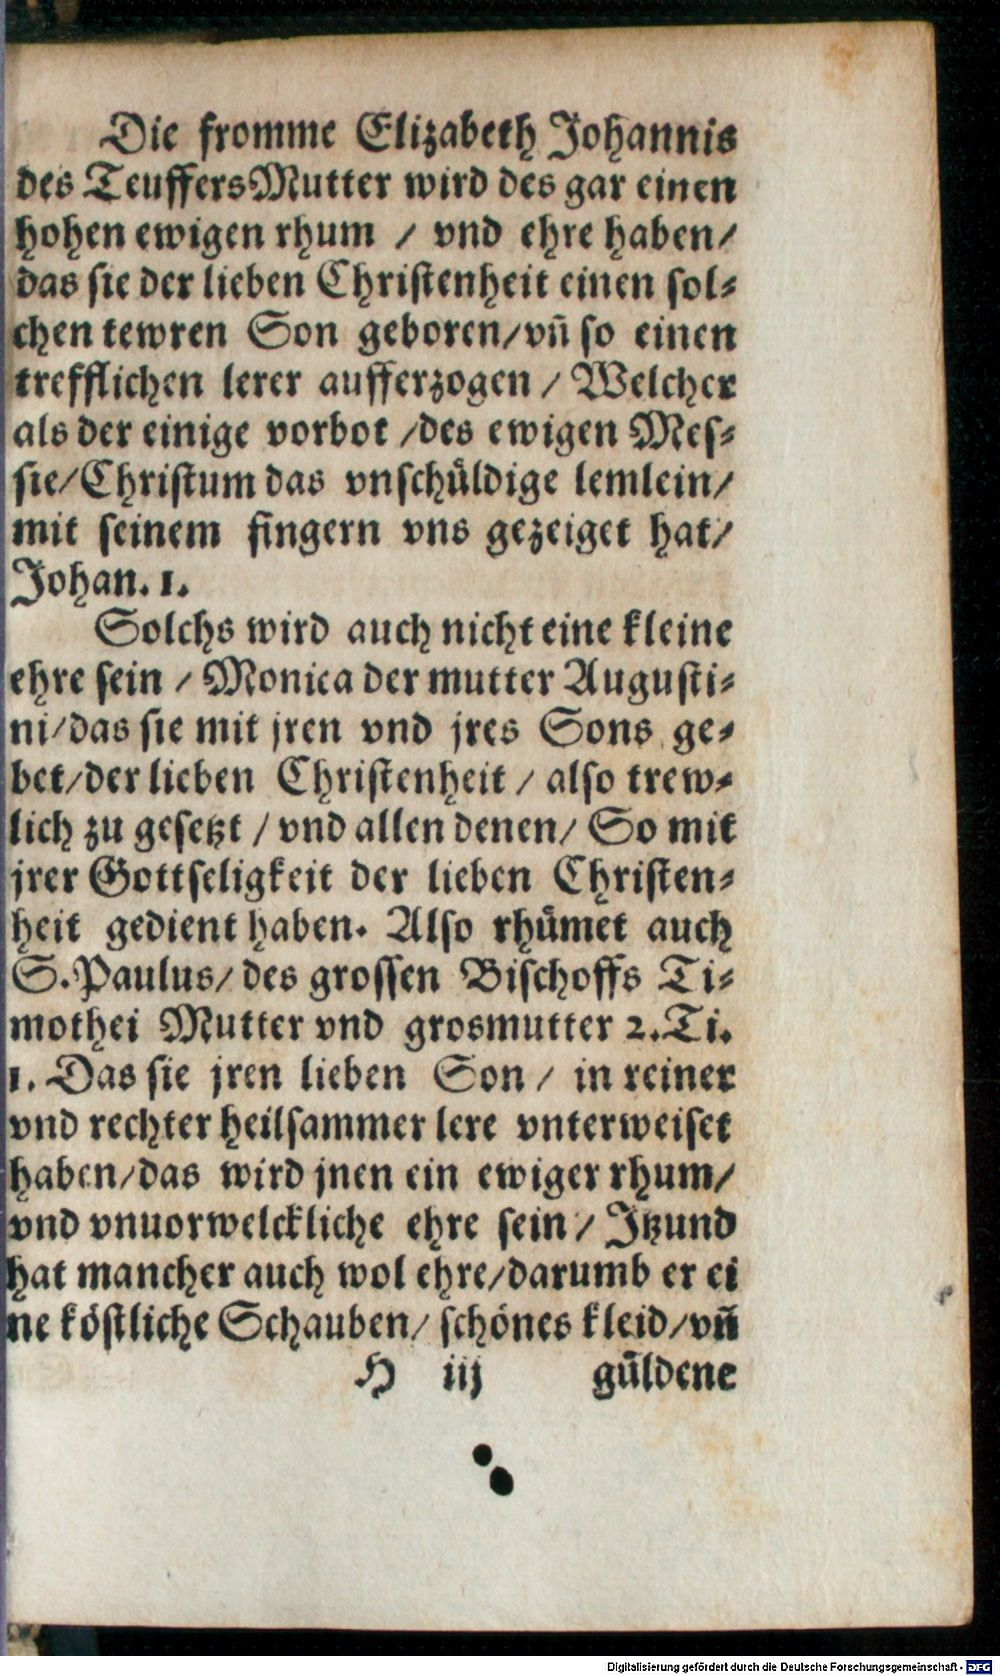 Die fromme Elizabeth Johannis
des TeuffersMutter wird des gar einen
hohen ewigen rhum / vnd ehre haben/
das sie der lieben Christenheit einen sol-
chen tewren Son geboren/vñ so einen
trefflichen lerer aufferzogen / Welcher
als der einige vorbot /des ewigen Mes-
sie/Christum das vnschüldige lemlein/
mit seinem fingern vns gezeiget hat/
Johan. 1.
Solchs wird auch nicht eine kleine
ehre sein / Monica der mutter Augusti-
ni/das sie mit jren vnd jres Sons ge-
bet/der lieben Christenheit / also trew-
lich zu gesetzt / vnd allen denen/ So mit
jrer Gottseligkeit der lieben Christen-
heit gedient haben. Also rhümet auch
S.Paulus/ des grossen Bischoffs Ti-
mothei Mutter vnd grosmutter 2.Ti.
1. Das sie jren lieben Son / in reiner
vnd rechter heilsammer lere vnterweiset
haben/das wird jnen ein ewiger rhum/
vnd vnuorwelckliche ehre sein / Jtzund
hat mancher auch wol ehre/darumb er ei
ne köstliche Schauben/ schönes kleid/vñ
H iij güldene
Digitalisierung gefördert durch die Deutsche Forschungsgemeinschaft - DFG